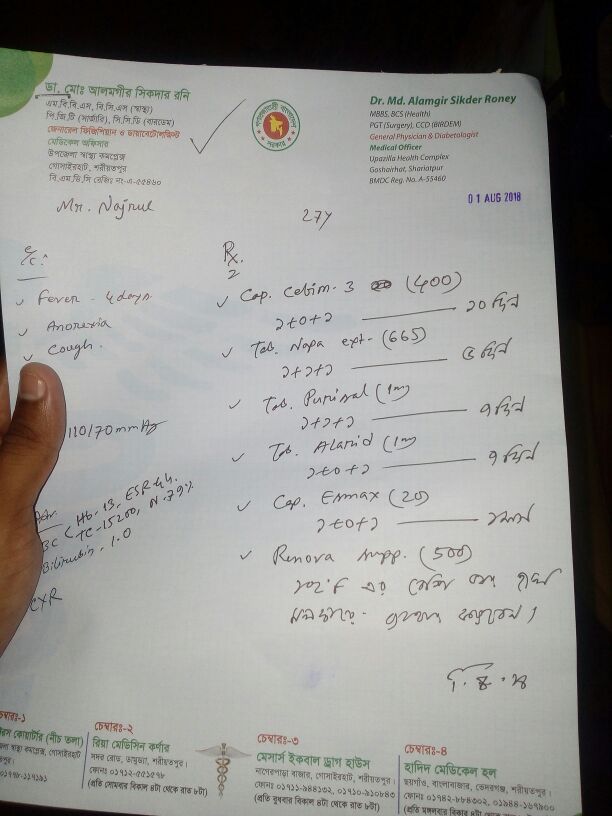 ডা. মোঃ আলমগীর সিকদার রনি
এম.বি.বি.এস, বি.সি.এস (স্বাস্থ্য)
পি.জি.টি (সার্জারি), সি.সি.ডি (বারডেম)
জেনারেল ফিজিশিয়ান ও ডায়াবেটোলজিস্ট
মেডিকেল অফিসার
উপজেলা স্বাস্থ্য কমপ্লেক্স
গোসাইরহাট, শরীয়তপুর
বি.এম.ডি.সি রেজিঃ নং-এ-৫৫৪৬০
Dr. Md. Alamgir Sikder Roney
MBBS, BCS (Health)
PGT (Surgery), CCD (BIRDEM)
General Physician & Diabetologist
Medical Officer
Upazilla Health Complex
Goshairhat, Shariatpur
BMDC Reg. No. A-55460
01 AUG 2018
Mr. Najrul
27y
C/C:
Fever - 4 days.
Anorexia
Cough.
110/70 mmHg
Hb-13, ESR-44
TC-15200, N-79%
Bilirubin - 1.0
CXR
Rx.
Cap. Cebim-3 (400)
১+০+১ ১০ দিন
Tab. Napa ext- (665)
১+১+১ ৫ দিন
Tab. Purisal (1m)
১+১+১ ৭ দিন
Tab. Alarid (1m)
১+০+১ ৭ দিন
Cap. Enmax (20)
১+০+১ ১মাস
Renova supp. (500)
১০২°F এর বেশি জ্বর হলে
মলদ্বারে- ব্যবহার করবেন।
চেম্বারঃ-১
কোয়ার্টার (নীচ তলা)
স্বাস্থ্য কমপ্লেক্স, গোসাইরহাট
চেম্বারঃ-২
রিয়া মেডিসিন কর্ণার
সদর রোড, ডামুড্যা, শরীয়তপুর।
ফোনঃ ০১৭১২-৫৫১৫৭৮
(প্রতি সোমবার বিকাল ৪টা থেকে রাত ৮টা)
চেম্বারঃ-৩
মেসার্স ইকবাল ড্রাগ হাউস
নাগেরপাড়া বাজার, গোসাইরহাট, শরীয়তপুর।
ফোনঃ ০১৭১১-৯৪৪১৩২, ০১৭১০-৯১০৮৪৩
(প্রতি বুধবার বিকাল ৪টা থেকে রাত ৮টা)
চেম্বারঃ-৪
হাদিদ মেডিকেল হল
ছয়গাঁও, বাংলাবাজার, ভেদরগঞ্জ, শরীয়তপুর।
ফোনঃ ০১৭৪২-৮৮৪৩০২, ০১৯৪৪-১৬৭৯০০
(প্রতি মঙ্গলবার বিকাল ৪টা থেকে রাত